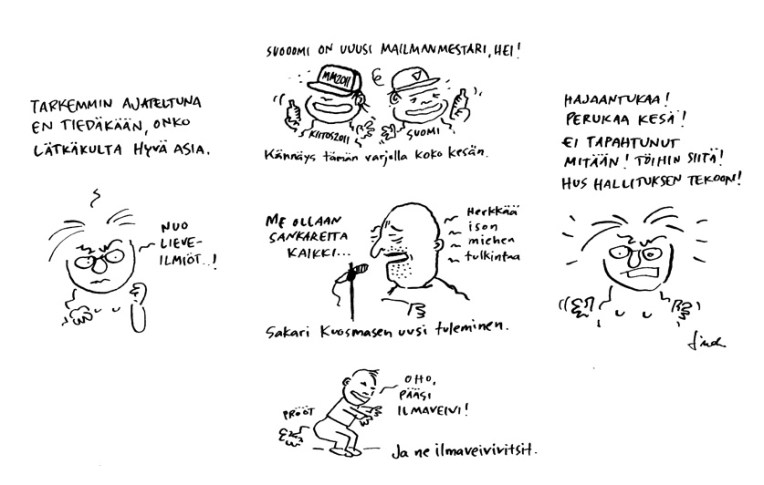 TARKEMMIN AJATELTUNA
EN TIEDÄKÄÄN, ONKO
LÄTKÄKULTA HYVÄ ASIA.
NUO
LIEVE-
ILMIÖT..!
SUOOOMI ON UUUSI MAILMANMESTARI, HEI!
MM2011
KIITOS2011
SUOMI
Kännäys tämän varjolla koko kesän.
ME OLLAAN
SANKAREITA
KAIKKI...
Herkkää
ison
miehen
tulkintaa
Sakari Kuosmasen uusi tuleminen.
PRÖÖT
OHO,
PÄÄSI
ILMAVEIVI!
Ja ne ilmaveivivitsit.
HAJAANTUKAA!
PERUKAA KESÄ!
EI TAPAHTUNUT
MITÄÄN! TÖIHIN SIITÄ!
HUS HALLITUKSEN TEKOON!